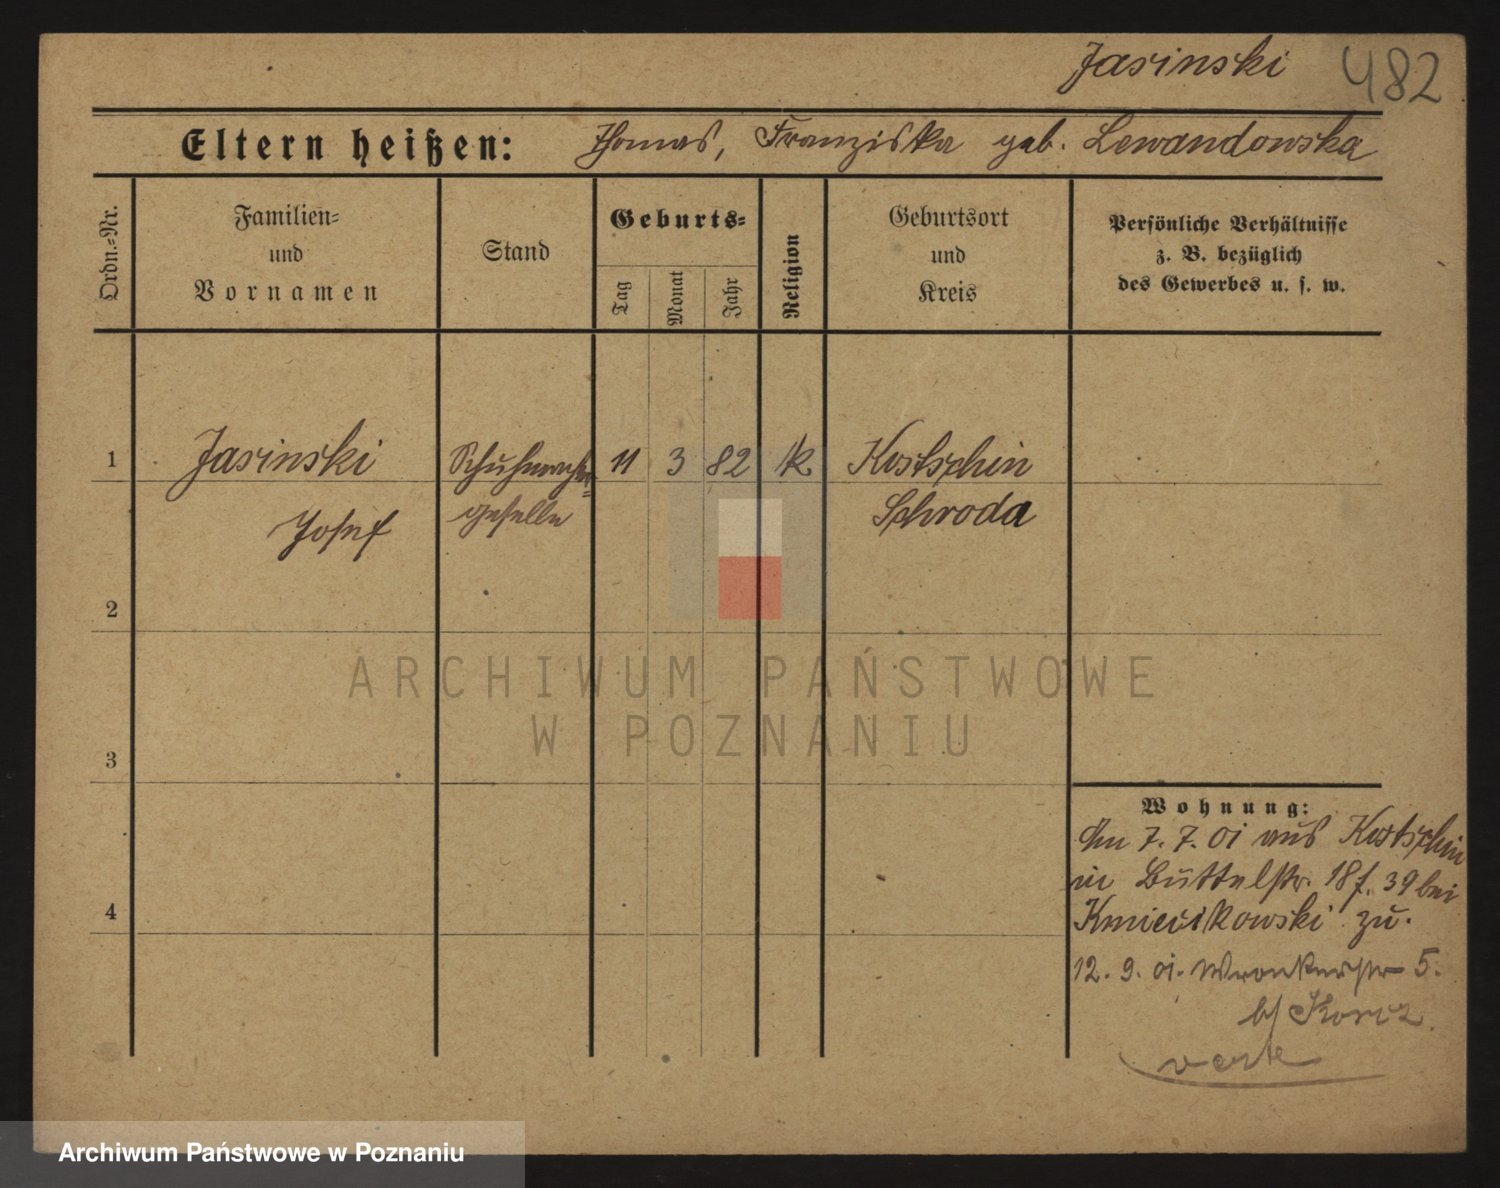 Jasinski 482
Eltern heißen: Thomas, Franziska geb. Lewandowska
Ordn.=Nr.
Familien=
und
Vornamen
Stand
Geburts=
Tag
Monat
Jahr
Religion
Geburtsort
und
Kreis
Persönliche Verhältnisse
z. B. bezüglich
des Gewerbes u. s. w.
1 Jasinski Schuhmacher= 11 3 82 k Kostschin
Josef geselle Schroda
2
ARCHIWUM PAŃSTWOWE
W POZNANIU
3
Wohnung:
Am 7. 7. 01 aus Kostschin
in Büttelstr. 18 f. 39 bei
Kmiecikowski zu.
4
12. 9. 01. Wronkerstr 5.
b/
verte
Archiwum Państwowe w Poznaniu